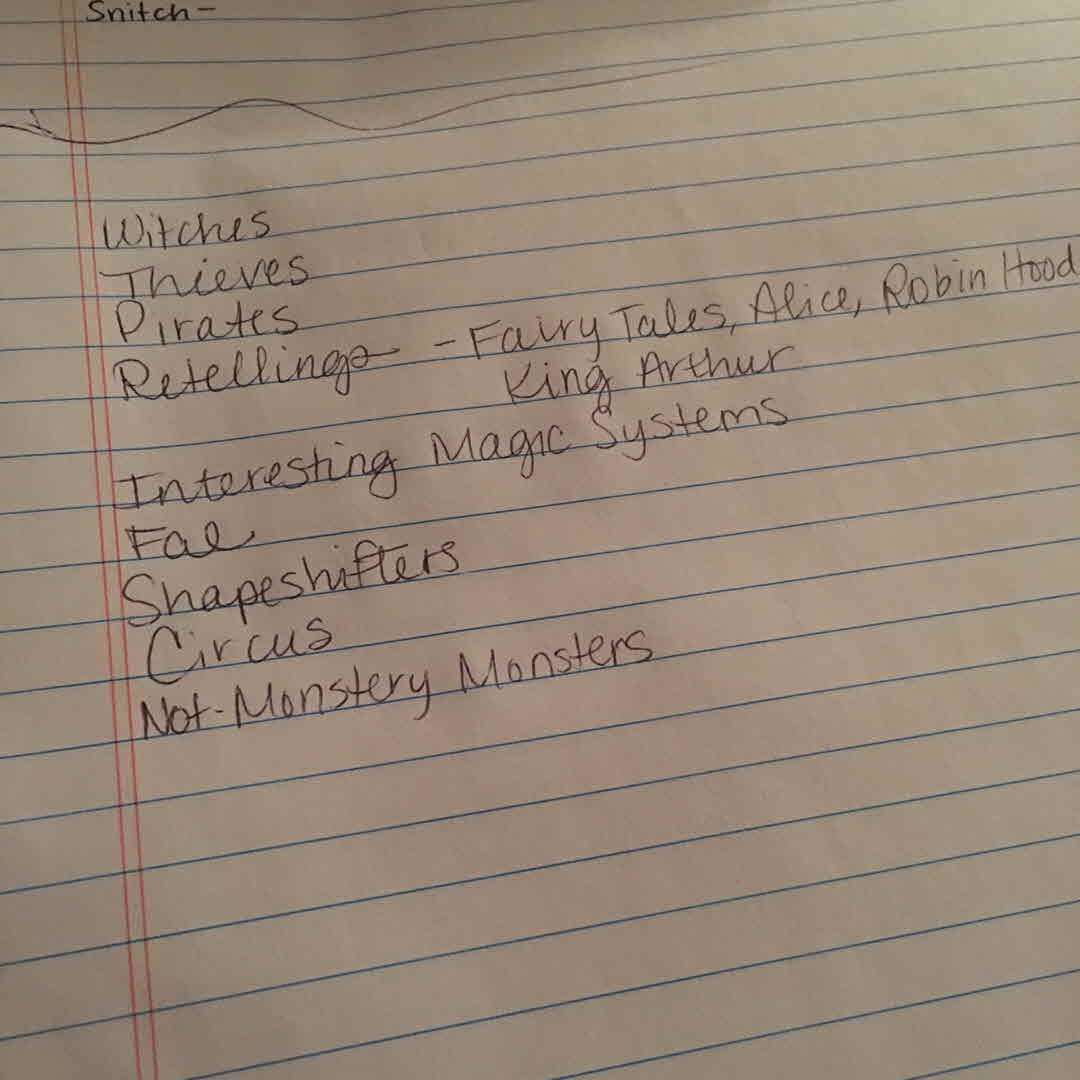 Snitch -
Witches
Thieves
Pirates
Retellings - Fairy Tales, Alice, Robin Hood
King Arthur
Interesting Magic Systems
Fae
Shapeshifters
Circus
Not-Monstery Monsters